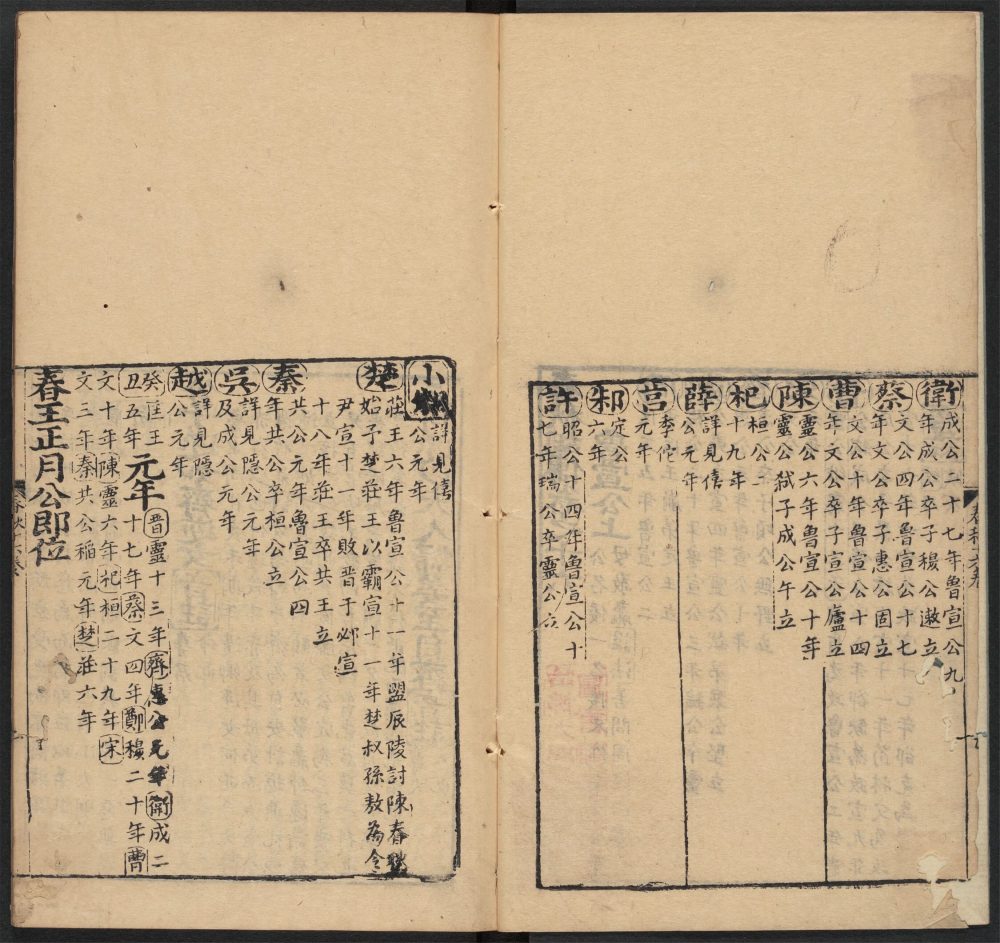 衛
成公二十七年魯宣公九
年成公卒子穆公遬立
蔡
文公四年魯宣公十七
年文公卒子惠公固立
曹
文公十年魯宣公十四
年文公卒子宣公廬立
陳
靈公六年魯宣公十年
靈公弒子成公午立
杞
桓公二
十九年
薛
詳見僖
公元年
莒
季佗
元年
邾
定公
六年
許
昭公十四年魯宣公十
七年瑞公卒靈公立
小邾
詳見僖
公元年
楚
莊王六年魯宣公十一年盟辰陵討陳春秋
始予楚莊王以霸宣十一年楚叔孫敖為令
尹宣十一年敗晋于邲宣
十八年莊王卒共王立
秦
共公元年魯宣公四
年共公卒桓公立
吳
詳見隱公元年
及成公元年
越
詳見隱
公元年
癸
丑
匡王
五年
元年
晋靈十三年齊惠公元年衛成二
十七年蔡文四年鄭穆二十年曹
文十年陳靈六年杞桓二十九年宋
文三年秦共公稲元年楚莊六年
春王正月公即位